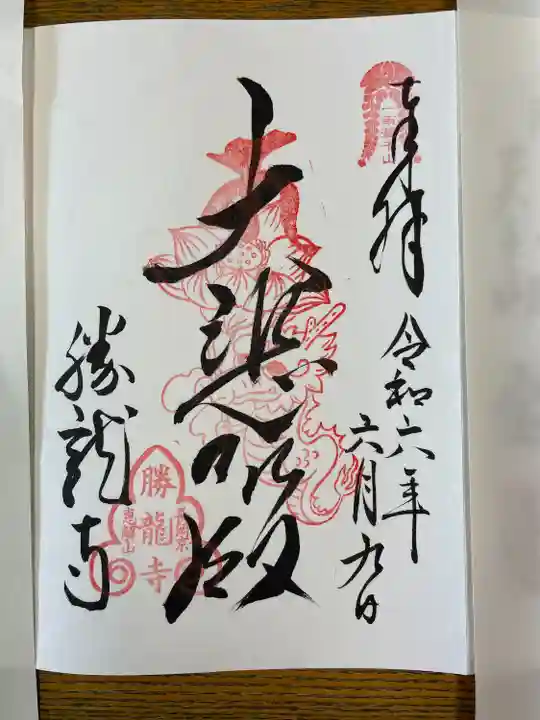 奉拝
令和六年
六月九日
大悲殿
勝龍寺
勝龍寺
恵解山